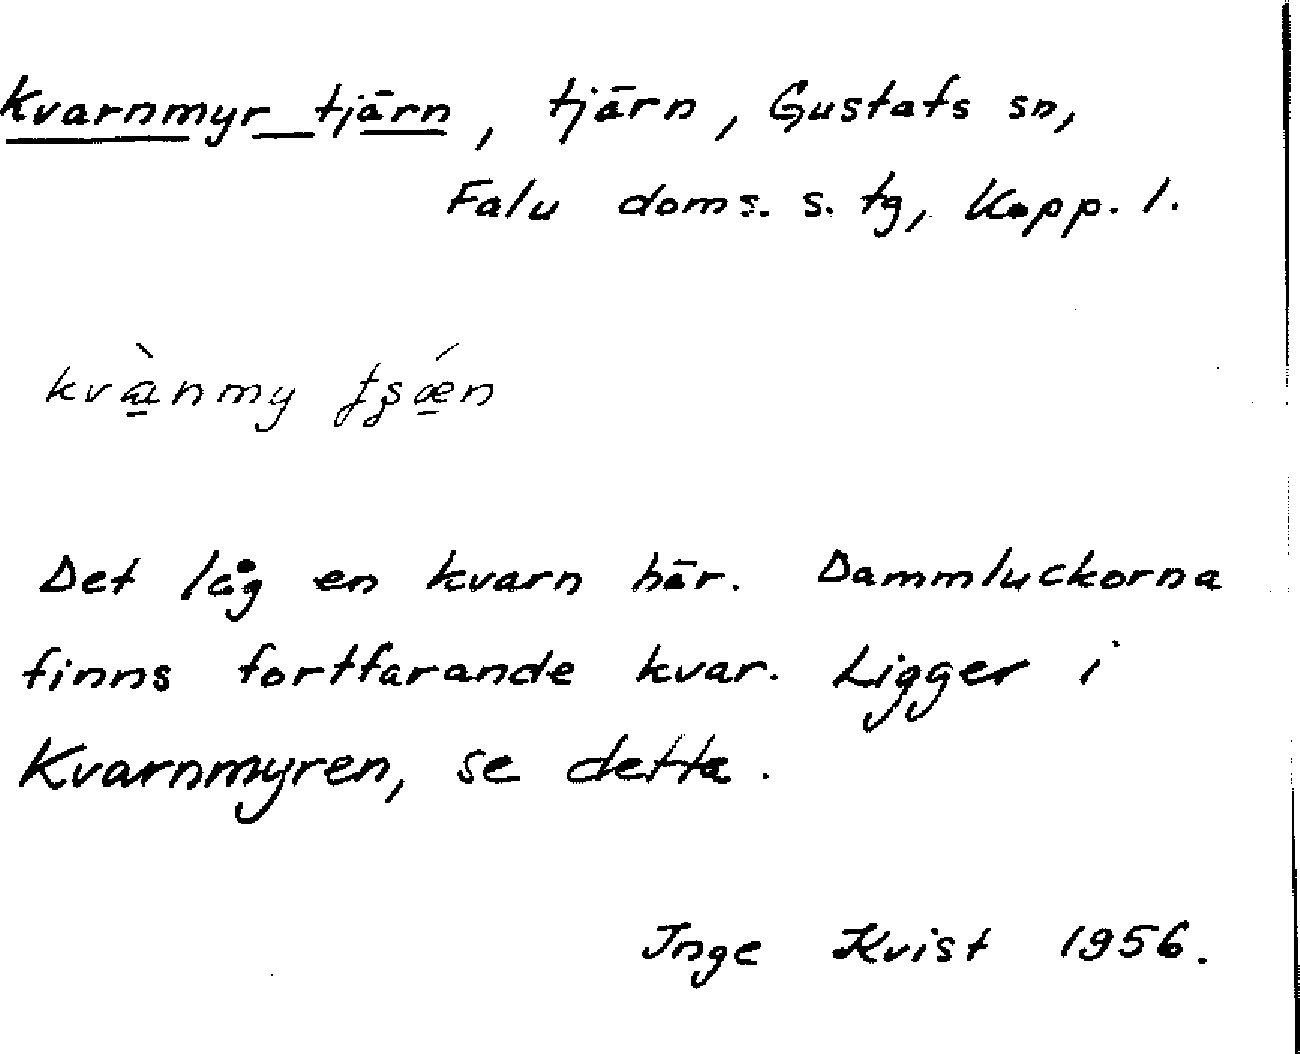 Kvarnmyr tjärn, tjärn, Gustafs sn,
Falu doms. s. tg, Kopp. l.
kvànmy
Det låg en kvarn här. Dammluckorna
finns fortfarande kvar. Ligger i
Kvarnmyren, se detta.
Inge Kvist 1956.